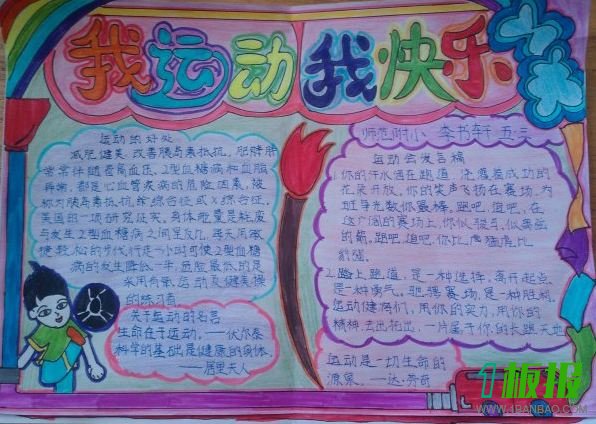 我运动 我快乐
运动的好处
减肥健美,改善胰岛素抵抗,肥胖者
常常伴随着高血压、2型糖尿病和血脂
异常,都是心血管疾病的危险因素,被
称为胰岛素抵抗综合征或X综合征,
美国的一项研究证实,身体能量是耗废
与发生2型糖尿病之间呈反比,每天用敏
捷轻松的步伐行走一小时可使2型糖尿
病的发生降低一半,危险最低的是
采用有氧运动及健美操
的练习者
关于运动的名言
生命在于运动。——伏尔泰
科学的基础是健康的身体。
——居里夫人
师范附小 李书轩 五、三
运动会发言稿
1.你的汗水洒在跑道,浇灌着成功的
花朵开放。你的笑声飞扬在赛场,为
班争光数你最棒。跑吧,追吧,在
这广阔的赛场上,你似骏马,似离弦
的箭。跑吧,追吧,你比虎猛虎比
豹强。
2.踏上跑道,是一种选择,离开起点,
是一种勇气。驰骋赛场,是一种胜利。
运动健儿们,用你的实力,用你的
精神,去出拓出,一片属于你的长跑天地
运动是一切生命的
源泉。——达·芬奇
1板报
WWW.1BANBAO.COM